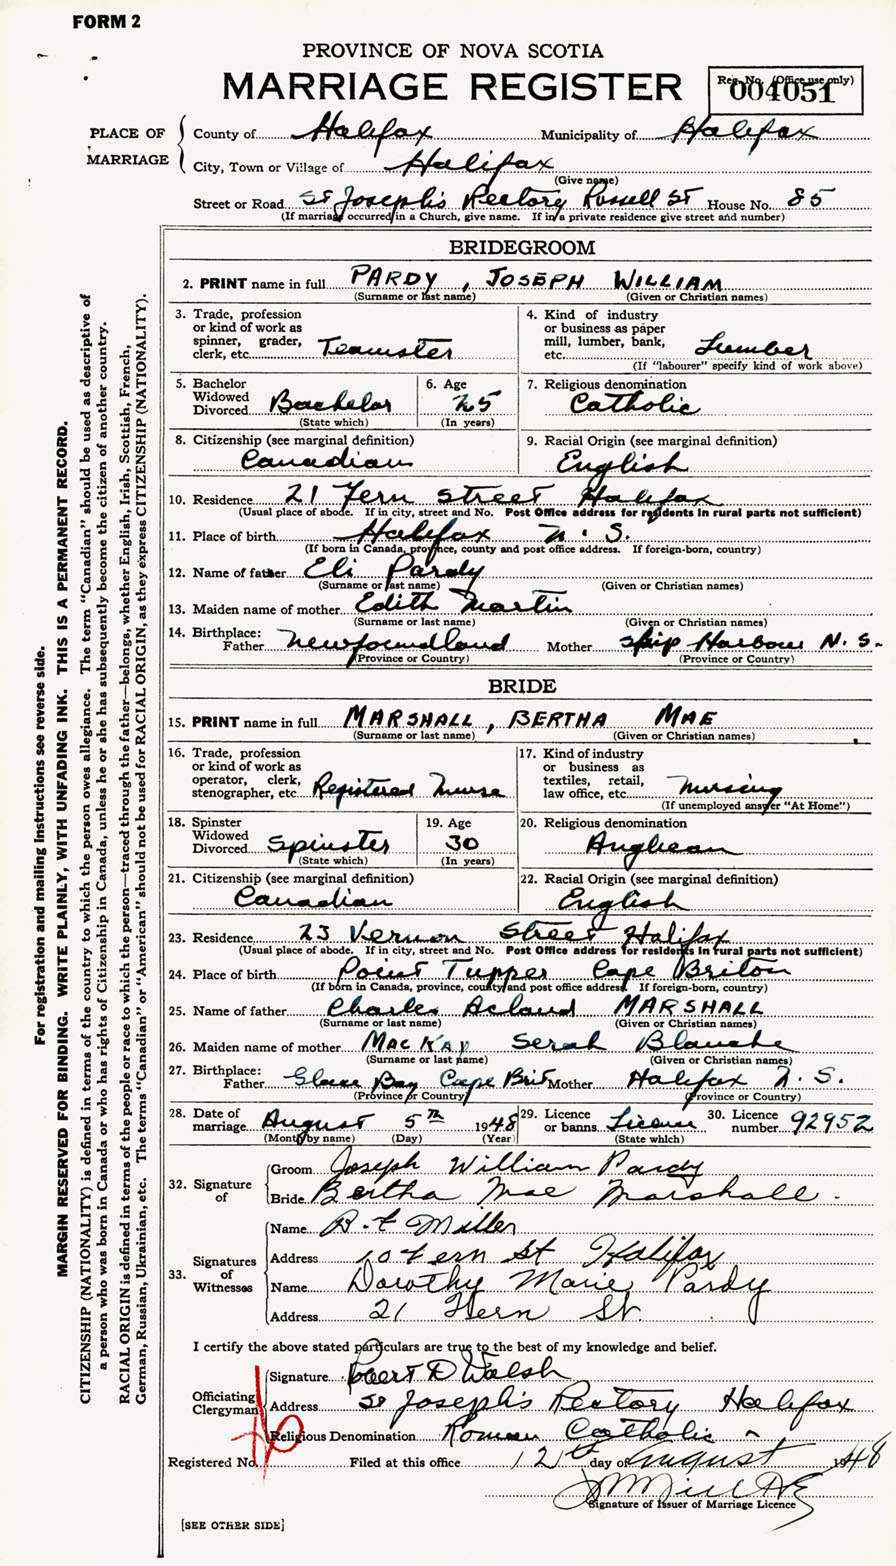 FORM 2
PROVINCE OF NOVA SCOTIA
MARRIAGE REGISTER
Reg. No. (Office use only)
004051
PLACE OF MARRIAGE
County of Halifax Municipality of Halifax
City, Town or Village of Halifax
(Give name)
Street or Road St Joseph's Rectory Russell St House No. 85
(If marriage occurred in a Church, give name. If in a private residence give street and number)
BRIDEGROOM
2. PRINT name in full PARDY, JOSEPH WILLIAM
(Surname or last name) (Given or Christian names)
3. Trade, profession or kind of work as spinner, grader, clerk, etc. Teamster
4. Kind of industry or business as paper mill, lumber, bank, etc. Lumber
(If "labourer" specify kind of work above)
5. Bachelor Widowed Divorced Bachelor
(State which)
6. Age 25
(In years)
7. Religious denomination Catholic
8. Citizenship (see marginal definition) Canadian
9. Racial Origin (see marginal definition) English
10. Residence 21 Fern Street Halifax
(Usual place of abode. If in city, street and No. Post Office address for residents in rural parts not sufficient)
11. Place of birth Halifax N. S.
(If born in Canada, province, county and post office address. If foreign-born, country)
12. Name of father Eli Pardy
(Surname or last name) (Given or Christian names)
13. Maiden name of mother Edith Martin
(Surname or last name) (Given or Christian names)
14. Birthplace: Father Newfoundland Mother Ship Harbour N. S.
(Province or Country) (Province or Country)
BRIDE
15. PRINT name in full MARSHALL, BERTHA MAE
(Surname or last name) (Given or Christian names)
16. Trade, profession or kind of work as operator, clerk, stenographer, etc. Registered Nurse
17. Kind of industry or business as textiles, retail, law office, etc. Nursing
(If unemployed answer "At Home")
18. Spinster Widowed Divorced Spinster
(State which)
19. Age 30
(In years)
20. Religious denomination Anglican
21. Citizenship (see marginal definition) Canadian
22. Racial Origin (see marginal definition) English
23. Residence 23 Vernon Street Halifax
(Usual place of abode. If in city, street and No. Post Office address for residents in rural parts not sufficient)
24. Place of birth Point Tupper Cape Briton
(If born in Canada, province, county and post office address. If foreign-born, country)
25. Name of father Charles Acland MARSHALL
(Surname or last name) (Given or Christian names)
26. Maiden name of mother MacKay Serah Blanche
(Surname or last name) (Given or Christian names)
27. Birthplace: Father Glace Bay Cape Brit Mother Halifax N. S.
(Province or Country) (Province or Country)
28. Date of marriage August 5th 1948
(Month by name) (Day) (Year)
29. Licence or banns Licence
(State which)
30. Licence number 92952
32. Signature of
Groom Joseph William Pardy
Bride Bertha Mae Marshall.
33. Signatures of Witnesses
Name Miller
Address Fern St Halifax
Name Dorothy Marie Pardy
Address 21 Fern St.
I certify the above stated particulars are true to the best of my knowledge and belief.
Officiating Clergyman
Signature Robert D Walsh
Address St Joseph's Rectory Halifax
Religious Denomination Roman Catholic
Registered No. Filed at this office 12th day of August 1948
Signature of Issuer of Marriage Licence
[SEE OTHER SIDE]
For registration and mailing instructions see reverse side.
MARGIN RESERVED FOR BINDING. WRITE PLAINLY, WITH UNFADING INK. THIS IS A PERMANENT RECORD.
CITIZENSHIP (NATIONALITY) is defined in terms of the country to which the person owes allegiance. The term "Canadian" should be used as descriptive of
a person who was born in Canada or who has rights of Citizenship in Canada, unless he or she has subsequently become the citizen of another country.
RACIAL ORIGIN is defined in terms of the people or race to which the person—traced through the father—belongs, whether English, Irish, Scottish, French,
German, Russian, Ukrainian, etc. The terms "Canadian" or "American" should not be used for RACIAL ORIGIN, as they express CITIZENSHIP (NATIONALITY).